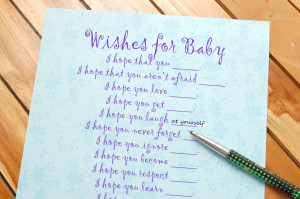 Wishes for Baby
I hope that you ____
I hope that you aren't afraid ____
I hope you love ____
I hope you get ____
I hope you laugh at yourself
I hope you never forget ____
I hope you ignore ____
I hope you become ____
I hope you respect ____
I hope you learn ____
I hope